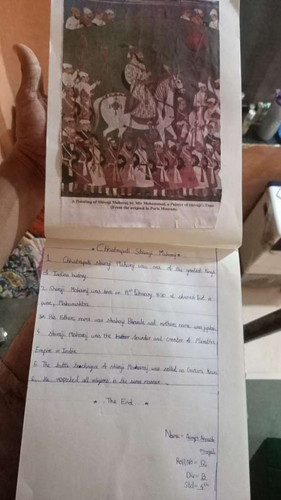 A Painting of Shivaji Maharaj by Mir Mohammad, a Painter of Shivaji's Time
(From the original in Paris Museum)
* Chhatrapati Shivaji Maharaj *
1. Chhatrapati Shivaji Maharaj was one of the greatest kings
of Indian history.
2. Shivaji Maharaj was born on 19th February 1630 at shivneri fort in
pune, Maharashtra.
3. his fathers name was Shahaji Bhosale and mothers name was jijabai
4. Shivaji Maharaj was the founder and creator of Maratha
Empire in India.
5. The battle of Shivaji Maharaj was called as
6. He respected all religions in the same manner.
* The End *
Name -
Roll No -
Div - B
Std - 5th